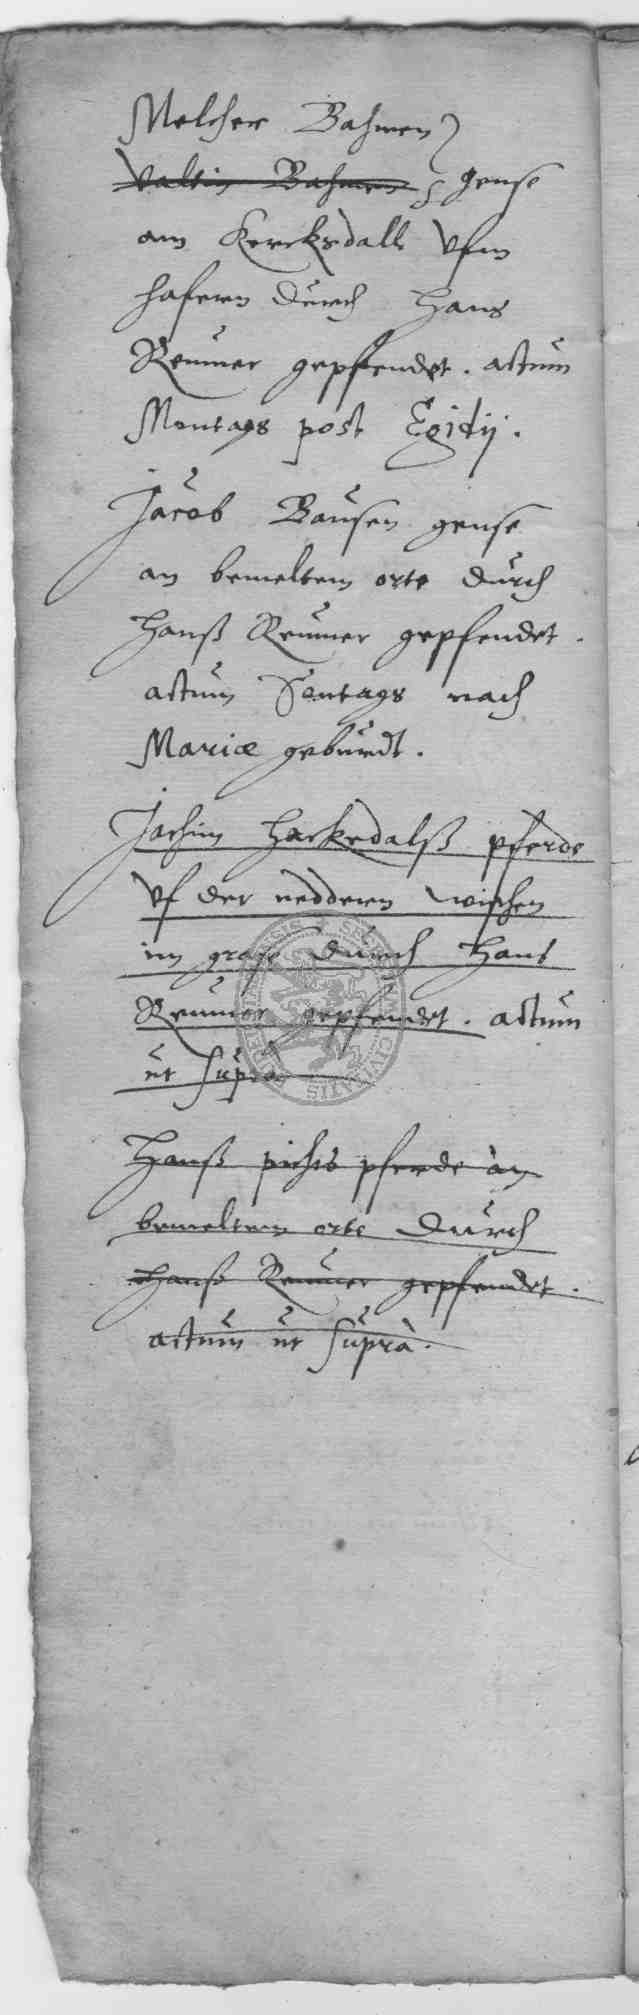 Melcher Bahmen
Valtin Bahmen gense
am Kercksdall vfm
hafern durch Hans
Reumer gepfendet. actum
Montags post Egidij.
Jacob Bausen gense
an bemeltem orte durch
Hanß Reumer gepfendet.
actum Sontags nach
Mariæ geburdt.
Jochim Harkedalß pferde
vf der nedderen wischen
im grase durch Hans
Reumer gepfendet. actum
ut supra
Hanß pferde an
bemeltem orte durch
Hanß Reumer gepfendet.
actum ut suprà.
CIVITATIS